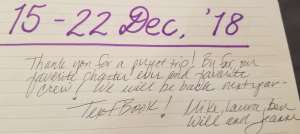 15 - 22 Dec, '18
Thank you for a perfect trip! By far, our
favorite charter ever and favorite
crew! We will be back next year.
TextBook! Mike, Laura, Ben
Will and